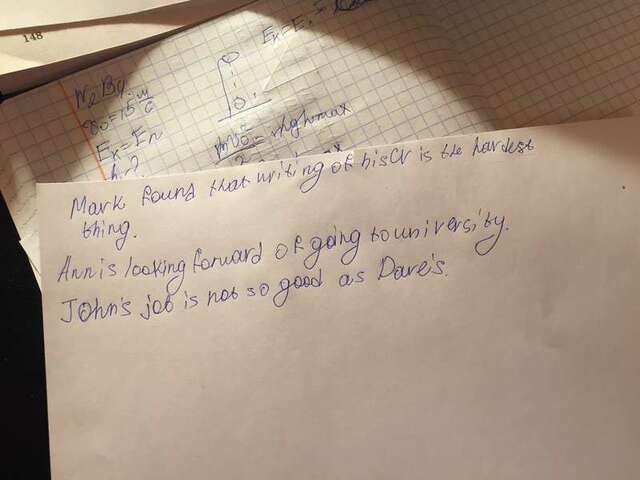 Mark found that writing of his CV is the hardest
thing.
Ann is looking forward of going to university.
John's job is not so good as Dave's.
148
υ0 = 15 м/с
Ek = En
h-?